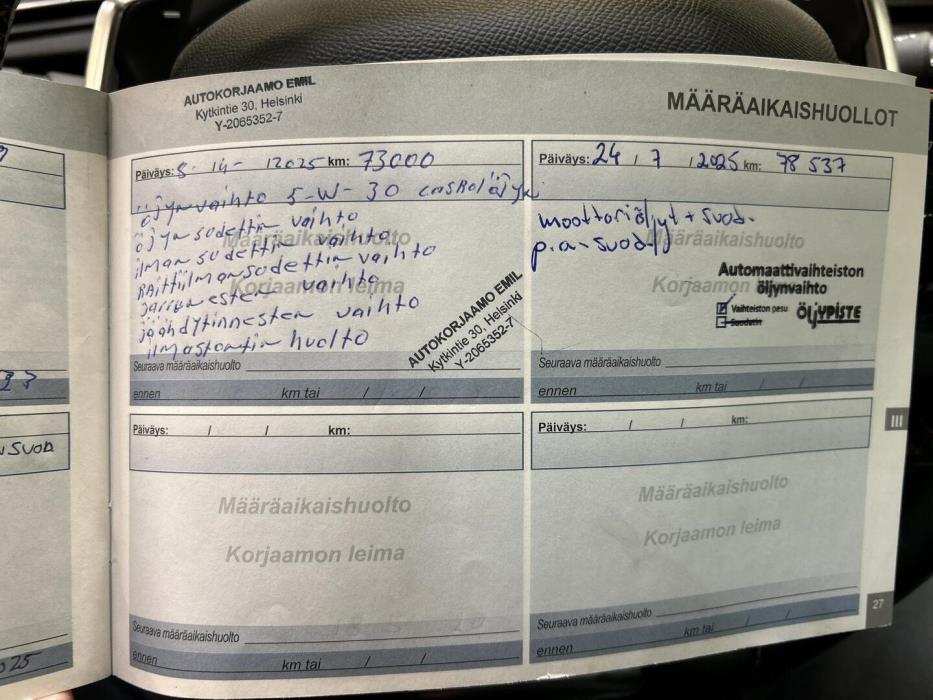 AUTOKORJAAMO EMIL
Kytkintie 30, Helsinki
Y-2065352-7
MÄÄRÄAIKAISHUOLLOT
Päiväys: 8 - 14 - 12025 km: 73000
öjyn vaihto 5-W-30 casRol öjyki
öjyn sodettin vaihto
ilman sodettin vaihto
RAittiilmansodettin vaihto
jarrunesten vaihto
jäähdytinnesten vaihto
ilmastontin huolto
Määräaikaishuolto
Korjaamon leima
AUTOKORJAAMO EMIL
Kytkintie 30, Helsinki
Y-2065352-7
Seuraava määräaikaishuolto
ennen km tai / /
Päiväys: 24 / 7 / 2025 km: 78 537
moottoriöljyt + suod.
p.a-suod
Määräaikaishuolto
Korjaamon
Automaattivaihteiston
öljynvaihto
Vaihteiston pesu
Suodatin
ÖLJYPISTE
Seuraava määräaikaishuolto
ennen km tai / /
Päiväys: / / km:
Määräaikaishuolto
Korjaamon leima
Seuraava määräaikaishuolto
ennen km tai / /
Päiväys: / / km:
Määräaikaishuolto
Korjaamon leima
Seuraava määräaikaishuolto
ennen km tai / /
III
27
SUOD
025